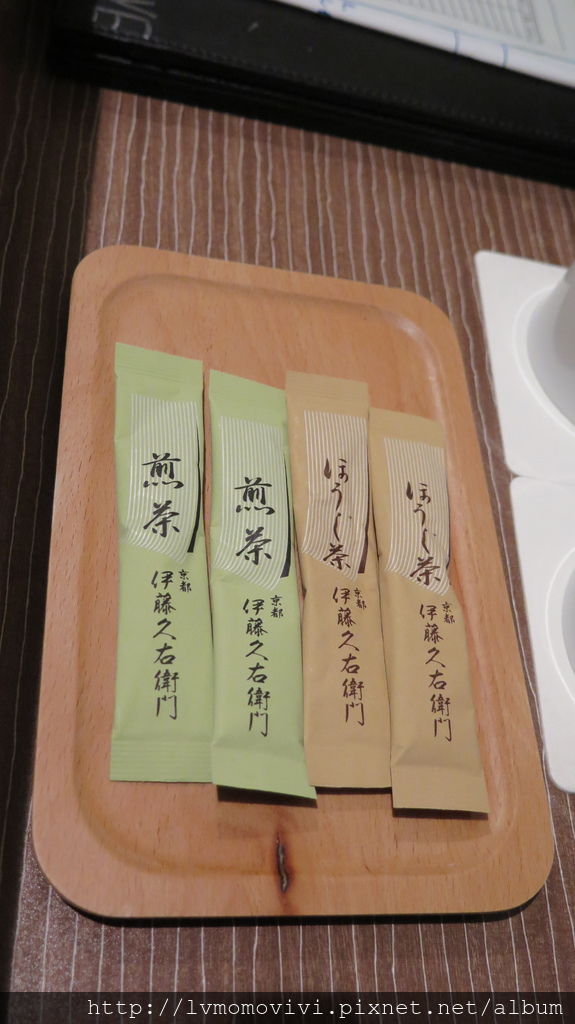 煎茶
京都
伊藤久右衛門
煎茶
京都
伊藤久右衛門
ほうじ茶
京都
伊藤久右衛門
ほうじ茶
京都
伊藤久右衛門
http://lvmomovivi.pixnet.net/album